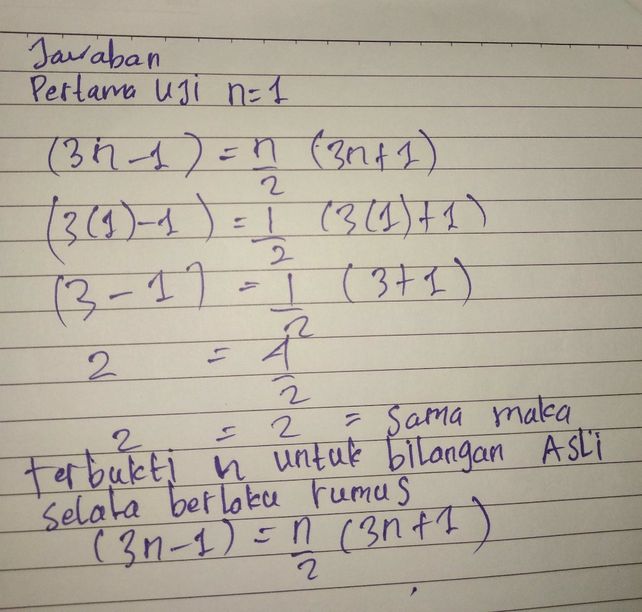 Jawaban
Pertama Uji n=1
(3n-1) = n/2 (3n+1)
(3(1)-1) = 1/2 (3(1)+1)
(3-1) = 1/2 (3+1)
2 = 4/2
2 = 2 = sama maka
terbukti n untuk bilangan Asli
selalu berlaku rumus
(3n-1) = n/2 (3n+1)